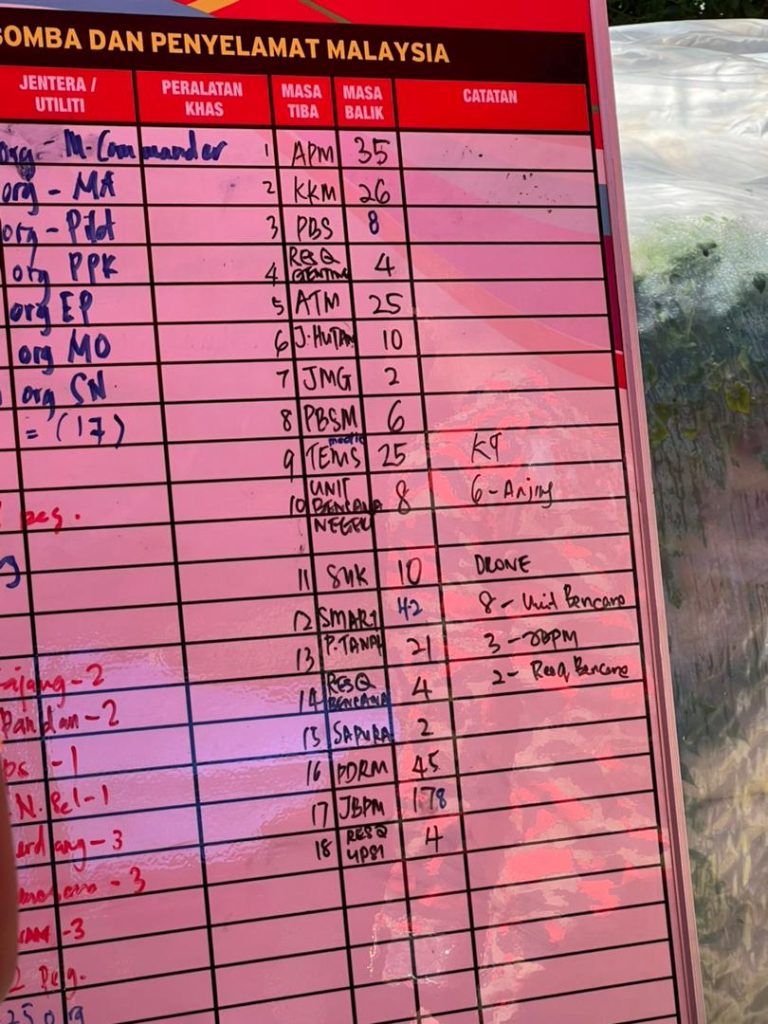 BOMBA DAN PENYELAMAT MALAYSIA
JENTERA / UTILITI PERALATAN KHAS MASA TIBA MASA BALIK CATATAN
org - M.Commander 1 APM 35
org - MA 2 KKM 26
org - Pilot 3 PBS 8
org PPK 4 RES Q GENTING 4
org EP 5 ATM 25
org MO 6 J.HUTAN 10
org SN 7 JMG 2
= (17) 8 PBSM 6
9 TEMS medic 25 K9
peg. 10 UNIT BENCANA NEGERI 8 6-Anjing
11 SUK 10 DRONE
12 SMART 42 8 - Unit Bencana
13 P.TANAH 21 3 - JBPM
ajang-2 14 RES Q BENCANA 4 2- ResQ Bencana
Pandan-2 15 SAPURA 2
-1 16 PDRM 45
N.Pel-1 17 JBPM 178
erdang-3 18 RES Q UPSI 4
-3
-3
2 Peg.
25 org